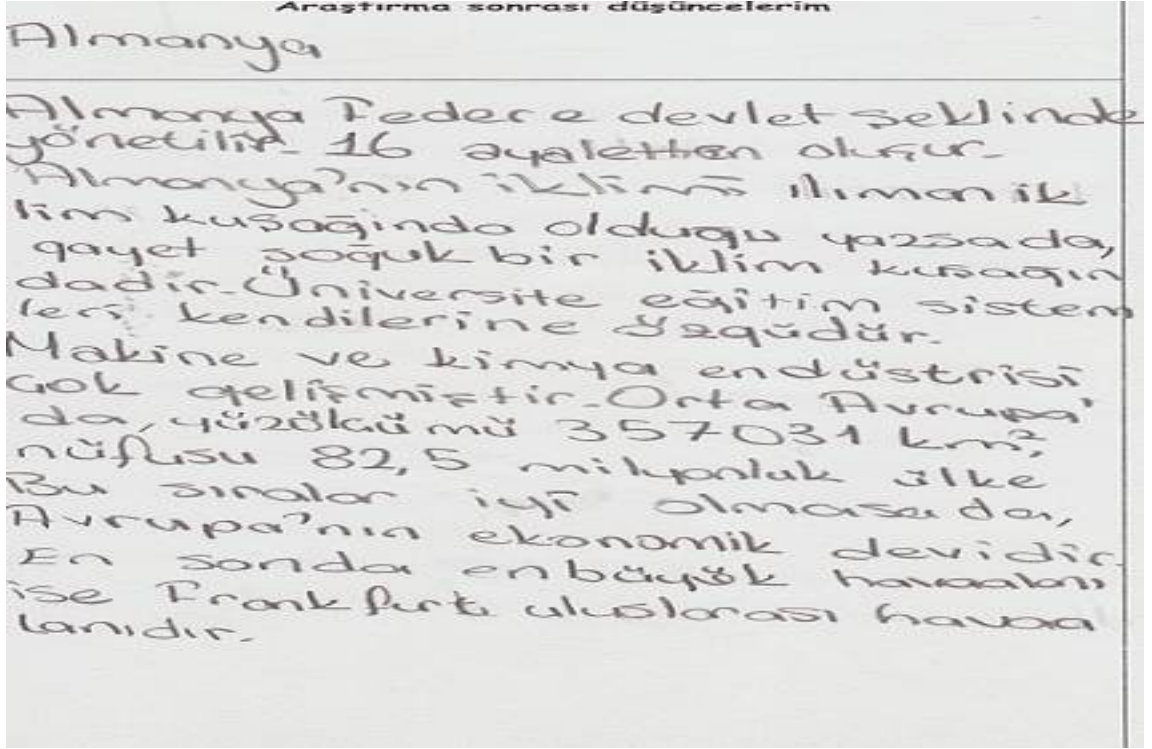 Araştırma sonrası düşüncelerim
Almanya
Almanya Federe devlet şeklinde
yönetilir. 16 eyaletten oluşur.
Almanya'nın iklimi ılıman ik
lim kuşağında olduğu yazsada,
gayet soğuk bir iklim kuşağın
dadır. Üniversite eğitim sistem
leri kendilerine özgüdür.
Makine ve kimya endüstrisi
çok gelişmiştir. Orta Avrupa'
da, yüzölçümü 357031 km²,
nüfusu 82,5 milyonluk ülke
Bu sıralar iyi olmasada,
Avrupa'nın ekonomik devidir.
En sonda enbüyük havaalanı
ise Frankfurt uluslarası havaa
lanıdır.